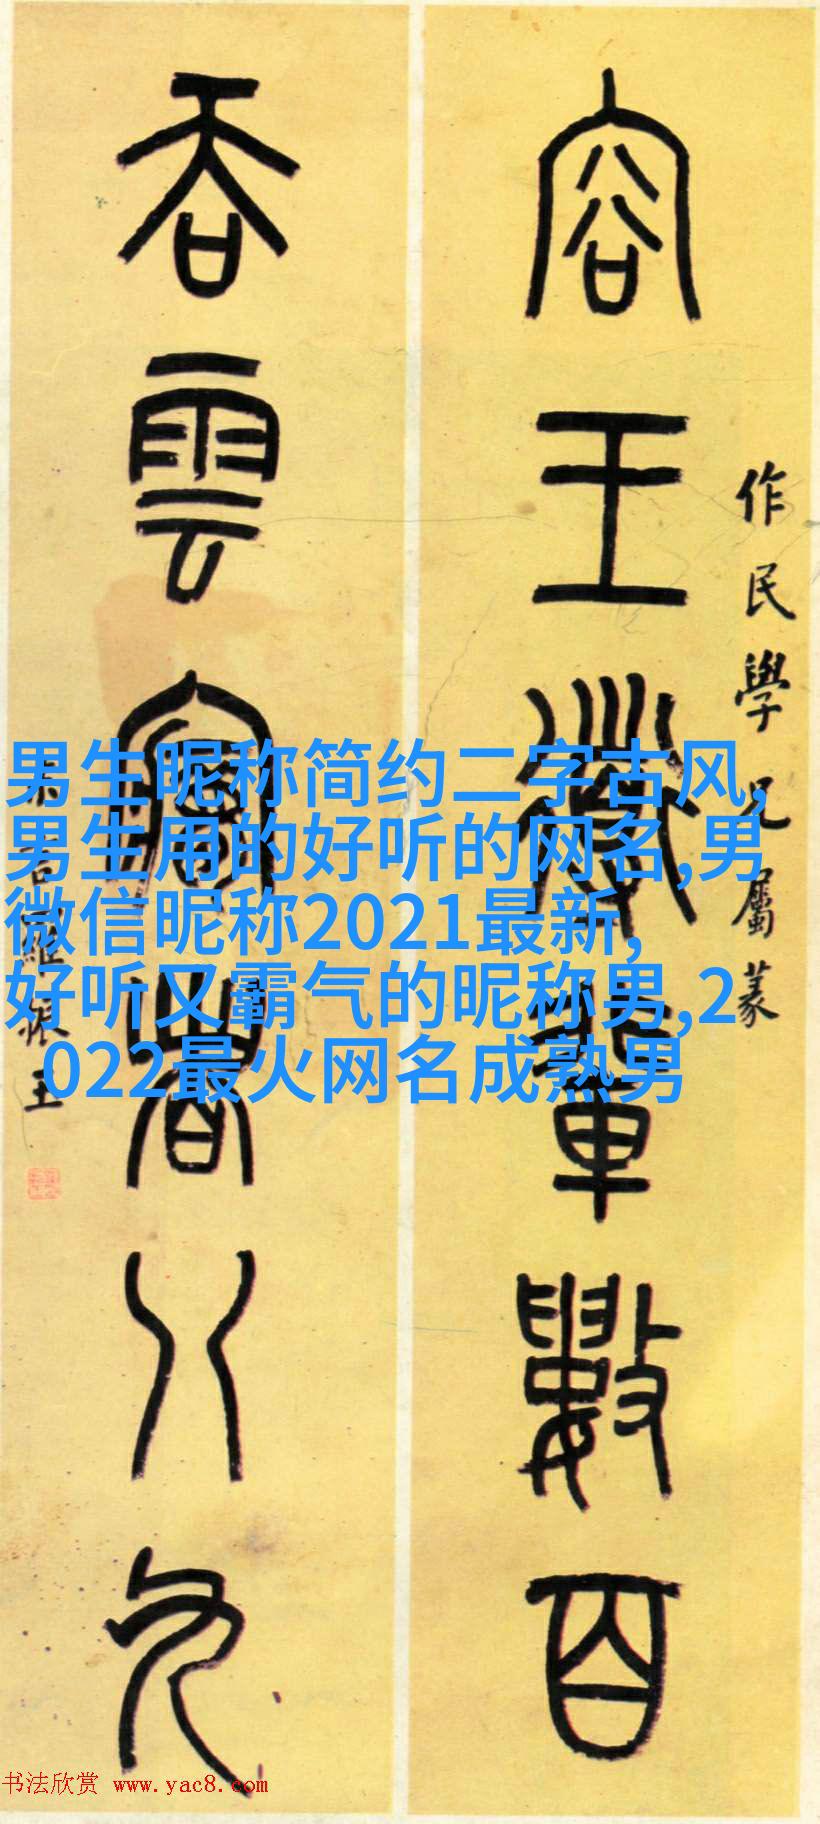 容王輩數百
作民學兄屬篆
吞雲夢者八九
羅振玉
男生昵称简约二字古风,
男生用的好听的网名,男
微信昵称2021最新,
好听又霸气的昵称男,2
022最火网名成熟男
书法欣赏 www.yac8.com